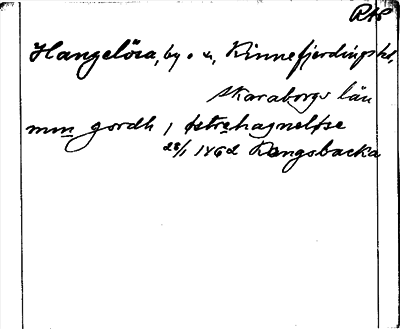 RAP
Hangelösa, by o. sn, Kinnefjerdings hd,
Skaraborgs län
min gordh i østrehagneløse
28/1 1462 Kongsbacka